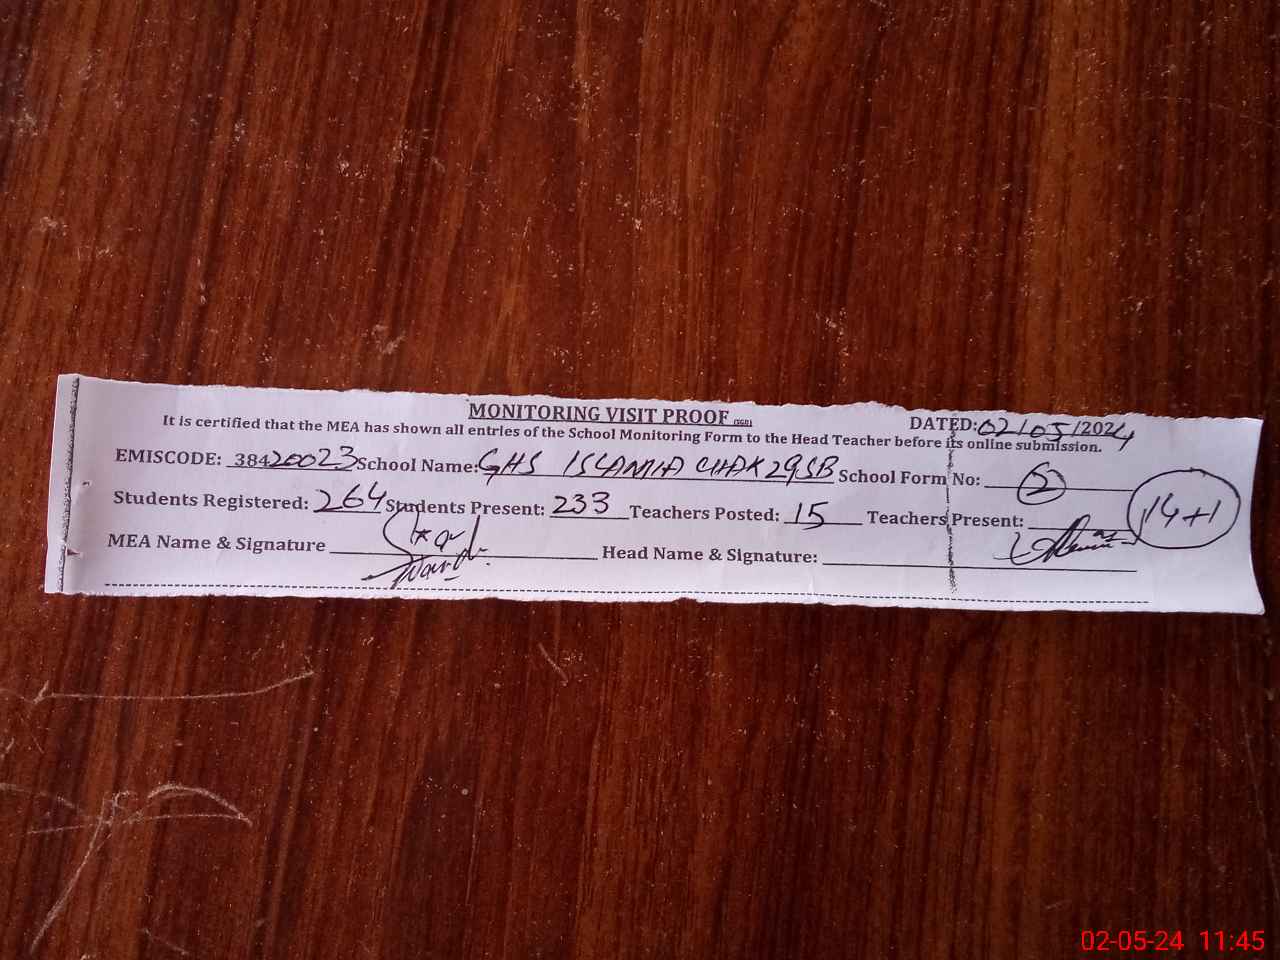 MONITORING VISIT PROOF (SGR) DATED: 02/05/2024
It is certified that the MEA has shown all entries of the School Monitoring Form to the Head Teacher before its online submission.
EMISCODE: 38420023 School Name: GHS ISLAMIA CHAK 29SB School Form No: 5
Students Registered: 264 Students Present: 233 Teachers Posted: 15 Teachers Present: 14+1
MEA Name & Signature Head Name & Signature:
02-05-24 11:45